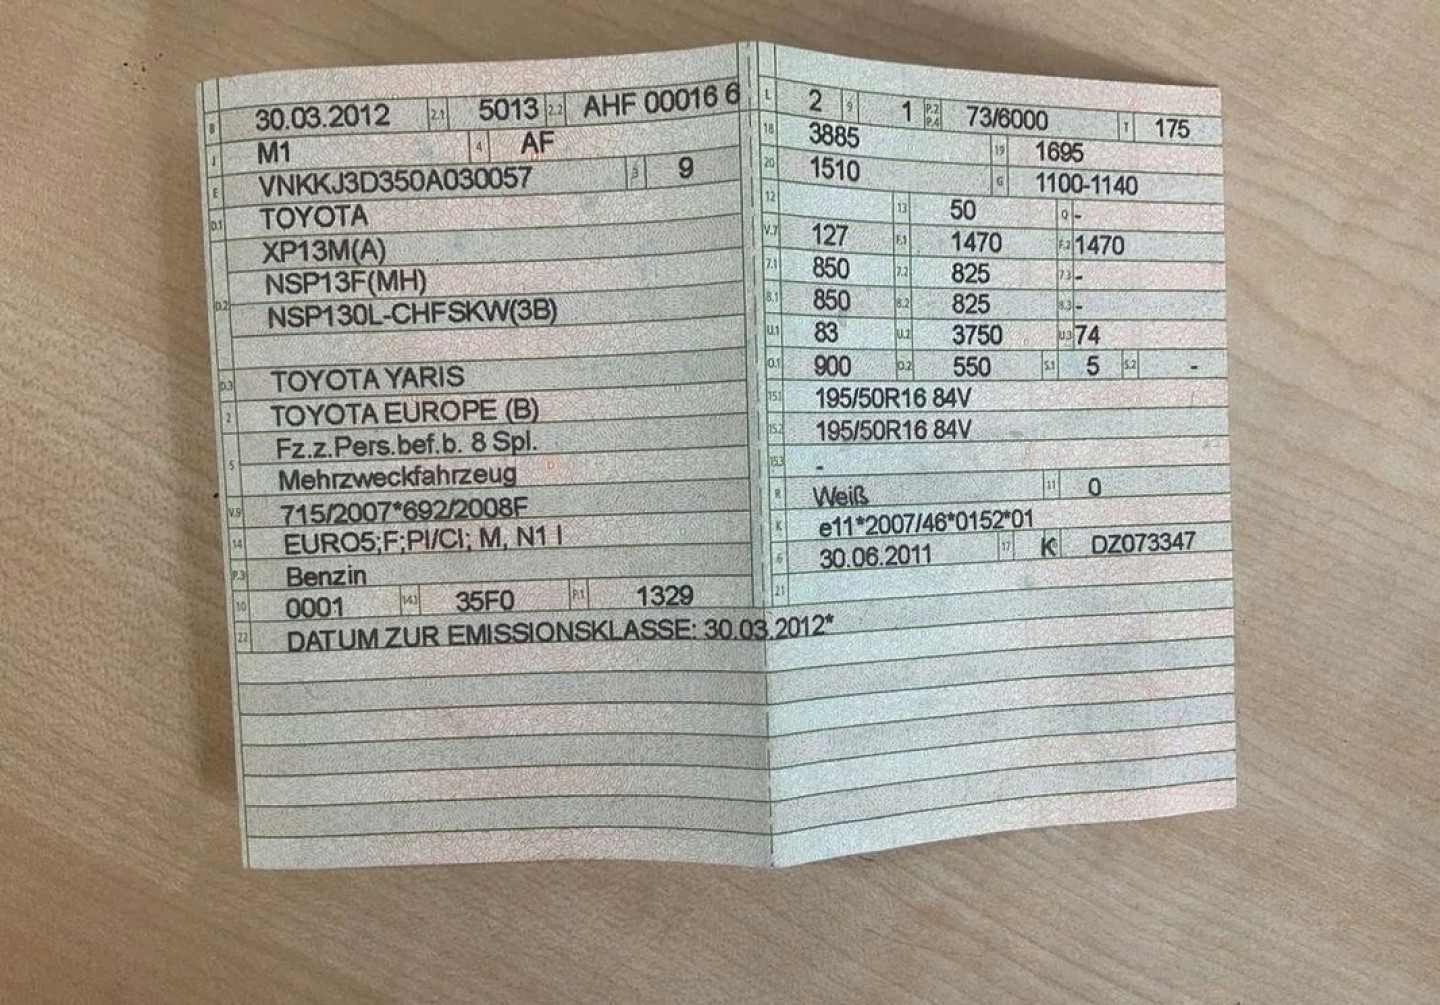 B 30.03.2012 2.1 5013 2.2 AHF 00016 6
J M1 4 AF
E VNKKJ3D350A030057 3 9
D.1 TOYOTA
XP13M(A)
NSP13F(MH)
D.2 NSP130L-CHFSKW(3B)
D.3 TOYOTA YARIS
2 TOYOTA EUROPE (B)
Fz.z.Pers.bef.b. 8 Spl.
5 Mehrzweckfahrzeug
V.9 715/2007*692/2008F
14 EURO5;F;PI/CI; M, N1 I
P.3 Benzin
10 0001 14.1 35F0 P.1 1329
22 DATUM ZUR EMISSIONSKLASSE: 30.03.2012*
L 2 9 1 P.2 P.4 73/6000 T 175
18 3885 19 1695
20 1510 G 1100-1140
12 13 50 Q -
V.7 127 F.1 1470 F.2 1470
7.1 850 7.2 825 7.3 -
8.1 850 8.2 825 8.3 -
U.1 83 U.2 3750 U.3 74
O.1 900 O.2 550 S.1 5 S.2 -
15.1 195/50R16 84V
15.2 195/50R16 84V
15.3 -
R Weiß 11 0
K e11*2007/46*0152*01
6 30.06.2011 17 K DZ073347
21